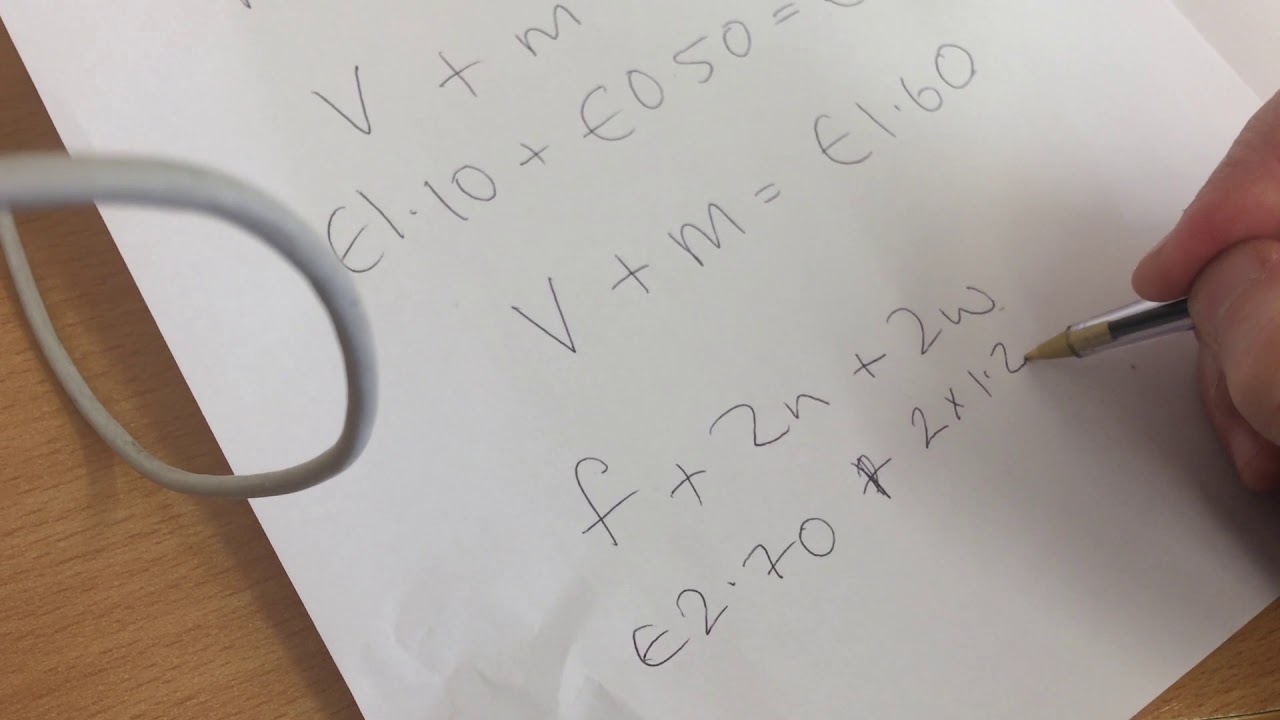 V + m
€1.10 + €0.50 =
V + m = €1.60
f + 2n + 2w
€2.70 + 2 x 1.2